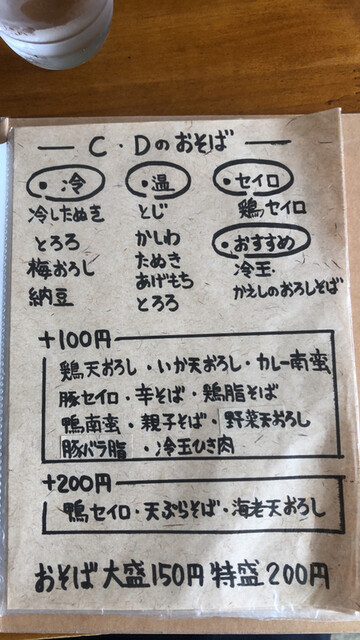 C・Dのおそば
・冷
冷したぬき
とろろ
梅おろし
納豆
・温
とじ
かしわ
たぬき
あげもち
とろろ
・セイロ
鶏セイロ
・おすすめ
冷玉・
かえしのおろしそば
+100円
鶏天おろし・いか天おろし・カレー南蛮
豚セイロ・辛そば・鶏脂そば
鴨南蛮・親子そば・野菜天おろし
豚バラ脂・冷玉ひき肉
+200円
鴨セイロ・天ぷらそば・海老天おろし
おそば大盛150円特盛200円